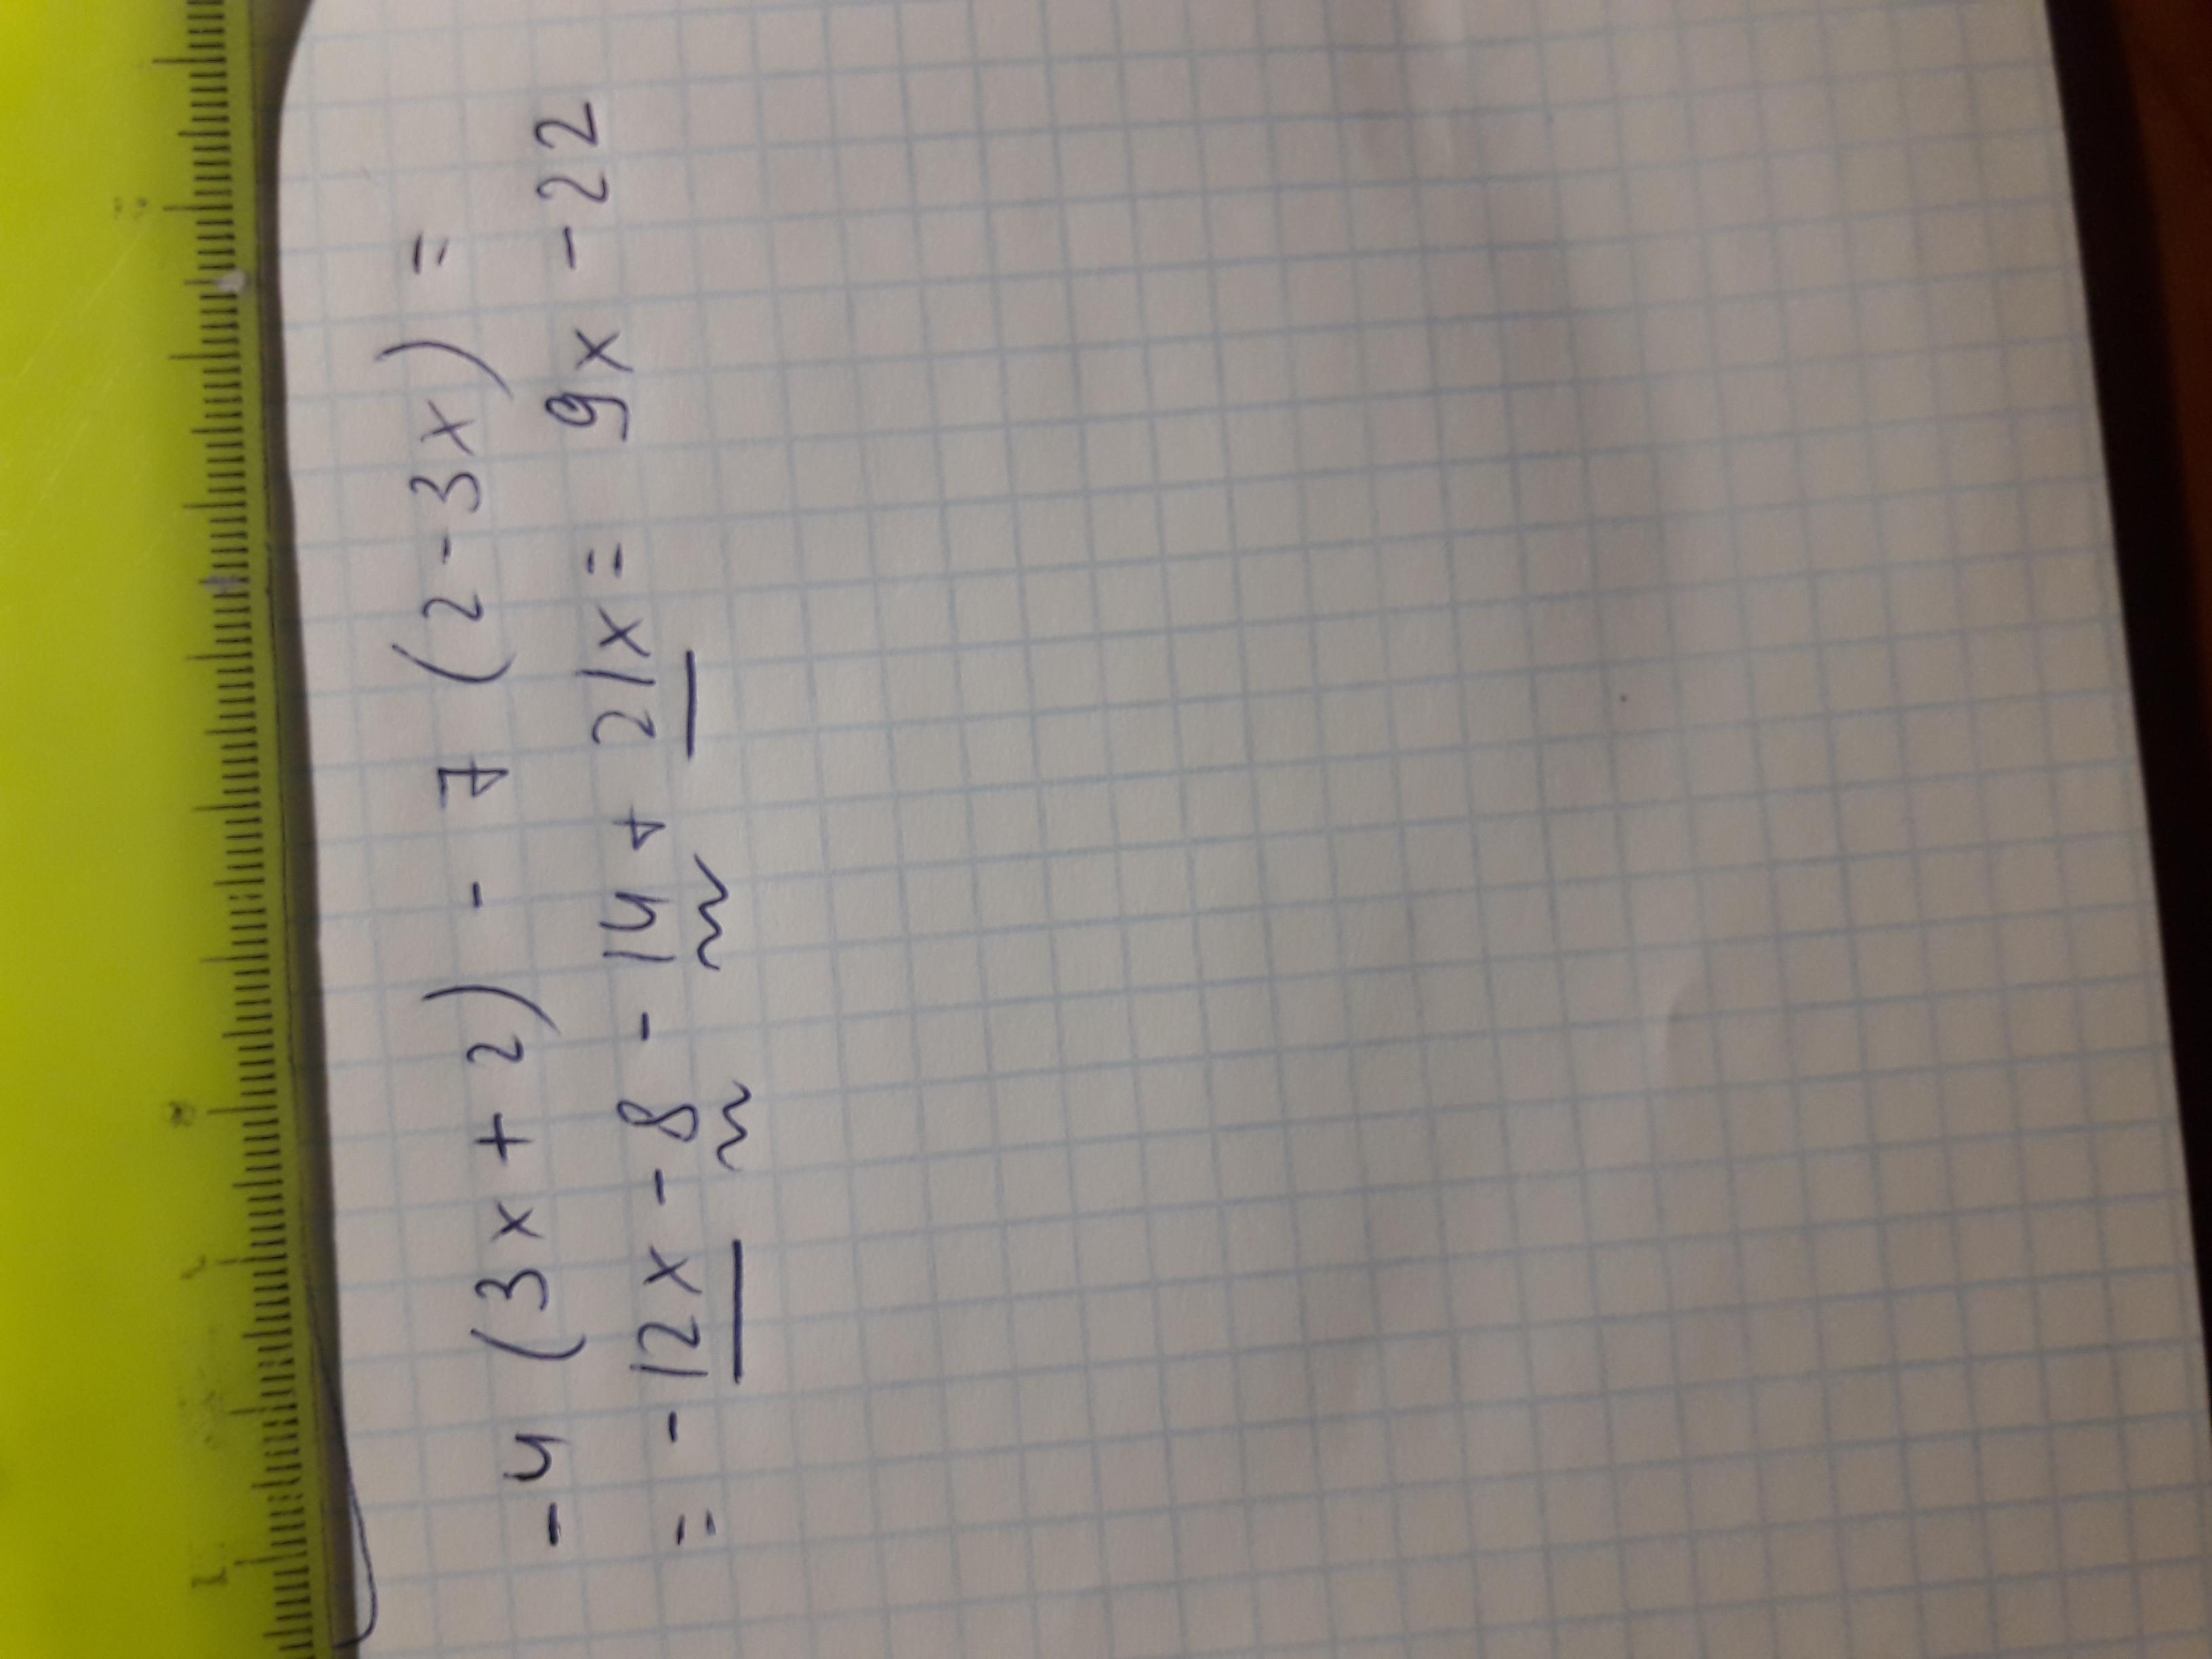 -4 (3x + 2) - 7 (2 - 3x) =
= - 12x - 8 - 14 + 21x = 9x - 22